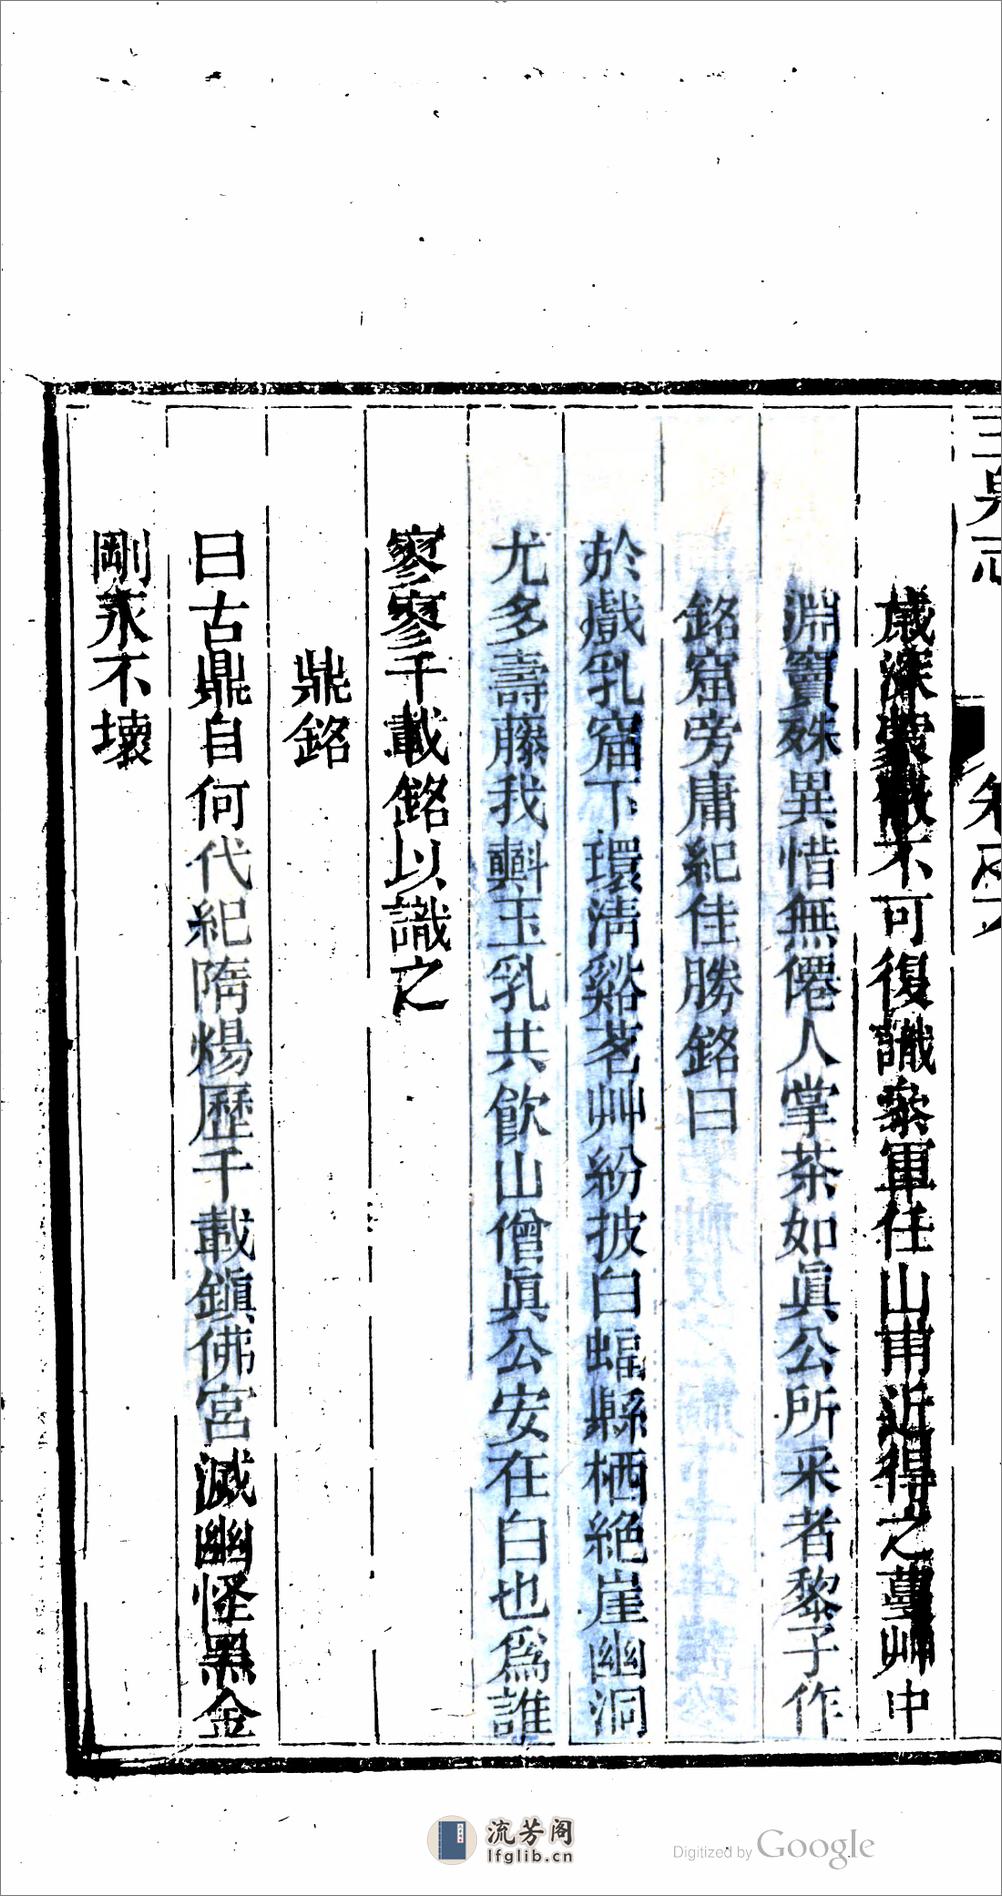 歲深蒙蔽不可復識叅軍任山甫近得之蔓艸中
淵竇殊異惜無僊人掌茶如眞公所采者黎子作
銘窟旁庸紀佳勝銘曰
於戲乳窟下環淸谿茗艸紛披白蝠縣栖絶崖幽洞
尤多壽藤我㪺玉乳共飮山僧眞公安在白也爲誰
寥寥千載銘以識之
鼎銘
曰古鼎自何代紀隋煬歷千載鎭佛宮滅幽怪黑金
剛永不壞
流芳阁
lfglib.cn
Digitized by Google